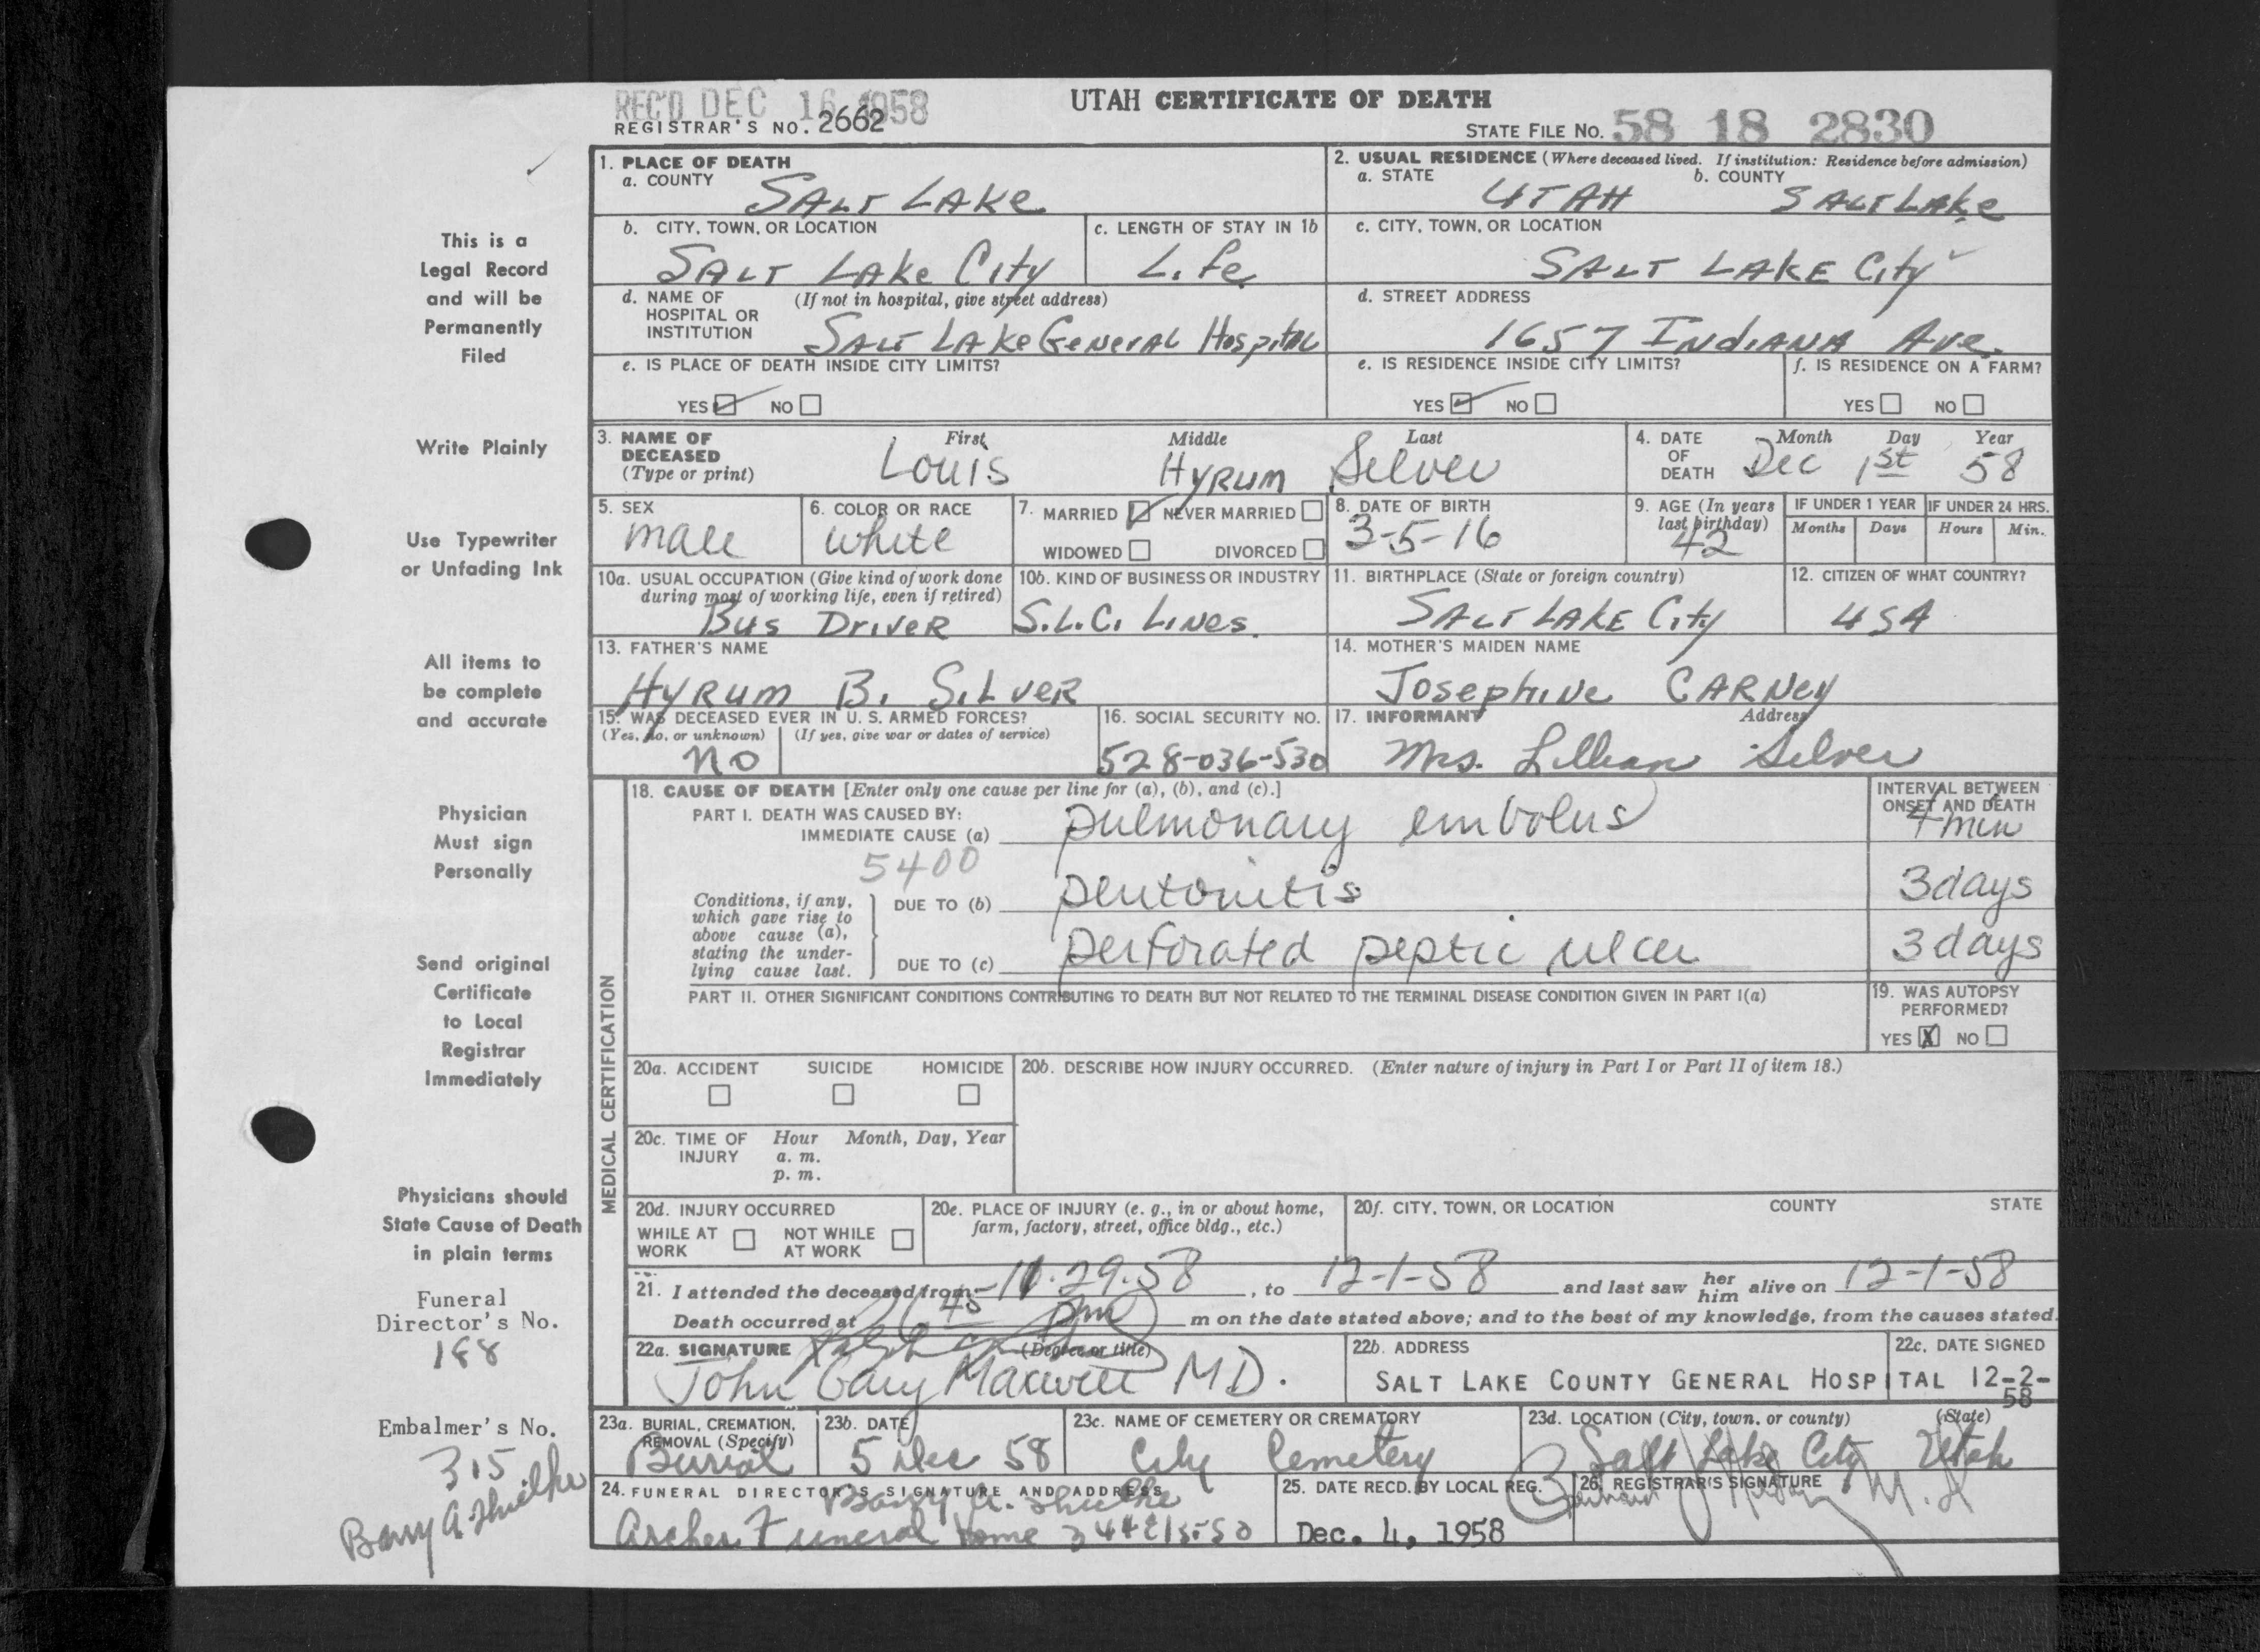 REC'D DEC 16 1958
UTAH CERTIFICATE OF DEATH
REGISTRAR'S NO. 2662
STATE FILE NO. 58 18 2830
This is a
Legal Record
and will be
Permanently
Filed
Write Plainly
Use Typewriter
or Unfading Ink
All items to
be complete
and accurate
Physician
Must sign
Personally
Send original
Certificate
to Local
Registrar
Immediately
Physicians should
State Cause of Death
in plain terms
Funeral
Director's No.
188
Embalmer's No.
315
Barry A.
1. PLACE OF DEATH
a. COUNTY
SALT LAKE
2. USUAL RESIDENCE (Where deceased lived. If institution: Residence before admission)
a. STATE UTAH b. COUNTY SALT LAKE
b. CITY, TOWN, OR LOCATION
SALT LAKE City
c. LENGTH OF STAY IN 1b
Life
c. CITY, TOWN, OR LOCATION
SALT LAKE City
d. NAME OF HOSPITAL OR INSTITUTION (If not in hospital, give street address)
SALT LAKE GENERAL Hospital
d. STREET ADDRESS
1657 INDIANA Ave.
e. IS PLACE OF DEATH INSIDE CITY LIMITS?
YES NO
e. IS RESIDENCE INSIDE CITY LIMITS?
YES NO
f. IS RESIDENCE ON A FARM?
YES NO
3. NAME OF DECEASED (Type or print)
First Middle Last
Louis HYRUM Silver
4. DATE OF DEATH
Month Day Year
Dec 1st 58
5. SEX
male
6. COLOR OR RACE
white
7. MARRIED NEVER MARRIED
WIDOWED DIVORCED
8. DATE OF BIRTH
3-5-16
9. AGE (In years last birthday)
42
IF UNDER 1 YEAR IF UNDER 24 HRS.
Months Days Hours Min.
10a. USUAL OCCUPATION (Give kind of work done during most of working life, even if retired)
Bus DRIVER
10b. KIND OF BUSINESS OR INDUSTRY
S.L.C. LINES.
11. BIRTHPLACE (State or foreign country)
SALT LAKE City
12. CITIZEN OF WHAT COUNTRY?
USA
13. FATHER'S NAME
HYRUM B. SILVER
14. MOTHER'S MAIDEN NAME
Josephine CARNEY
15. WAS DECEASED EVER IN U. S. ARMED FORCES?
(Yes, no, or unknown) (If yes, give war or dates of service)
no
16. SOCIAL SECURITY NO.
528-036-530
17. INFORMANT Address
Mrs. Lillian Silver
MEDICAL CERTIFICATION
18. CAUSE OF DEATH [Enter only one cause per line for (a), (b), and (c).]
INTERVAL BETWEEN ONSET AND DEATH
PART I. DEATH WAS CAUSED BY:
IMMEDIATE CAUSE (a) pulmonary embolus min
5400
Conditions, if any, which gave rise to above cause (a), stating the underlying cause last.
DUE TO (b) peritonitis 3 days
DUE TO (c) perforated peptic ulcer 3 days
PART II. OTHER SIGNIFICANT CONDITIONS CONTRIBUTING TO DEATH BUT NOT RELATED TO THE TERMINAL DISEASE CONDITION GIVEN IN PART I(a)
19. WAS AUTOPSY PERFORMED?
YES X NO
20a. ACCIDENT SUICIDE HOMICIDE
20b. DESCRIBE HOW INJURY OCCURRED. (Enter nature of injury in Part I or Part II of item 18.)
20c. TIME OF INJURY Hour Month, Day, Year
a. m.
p. m.
20d. INJURY OCCURRED
WHILE AT WORK NOT WHILE AT WORK
20e. PLACE OF INJURY (e. g., in or about home, farm, factory, street, office bldg., etc.)
20f. CITY, TOWN, OR LOCATION COUNTY STATE
21. I attended the deceased from 11-29-58, to 12-1-58 and last saw her him alive on 12-1-58
Death occurred at 6 45 pm m on the date stated above; and to the best of my knowledge, from the causes stated.
22a. SIGNATURE (Degree or title)
John Gary Maxwell MD.
22b. ADDRESS
SALT LAKE COUNTY GENERAL HOSPITAL
22c. DATE SIGNED
12-2-58
23a. BURIAL, CREMATION, REMOVAL (Specify)
Burial
23b. DATE
5 Dec 58
23c. NAME OF CEMETERY OR CREMATORY
City Cemetery
23d. LOCATION (City, town, or county) (State)
Salt Lake City Utah
24. FUNERAL DIRECTOR'S SIGNATURE AND ADDRESS
Barry A.
Archer Funeral Home
25. DATE RECD. BY LOCAL REG.
Dec. 4, 1958
26. REGISTRAR'S SIGNATURE